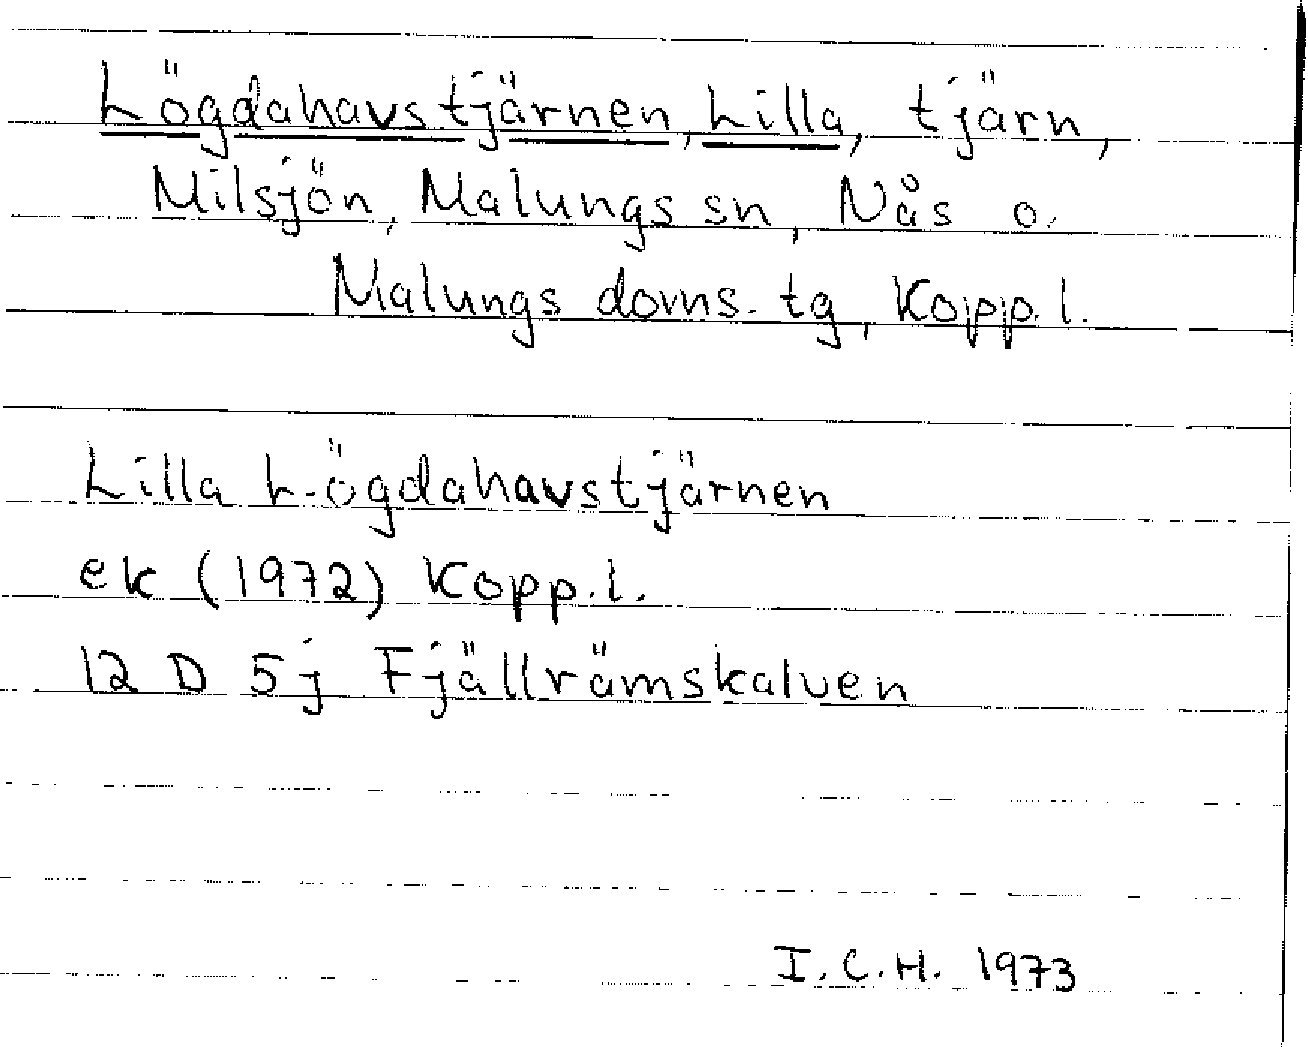 Lögdahavstjärnen, Lilla, tjärn,
Milsjön, Malungs sn, Nås o.
Malungs doms. tg, Kopp. l.
Lilla Lögdahavstjärnen
ek (1972) Kopp. l.
12 D 5j Fjällrämskalven
I. C. H. 1973